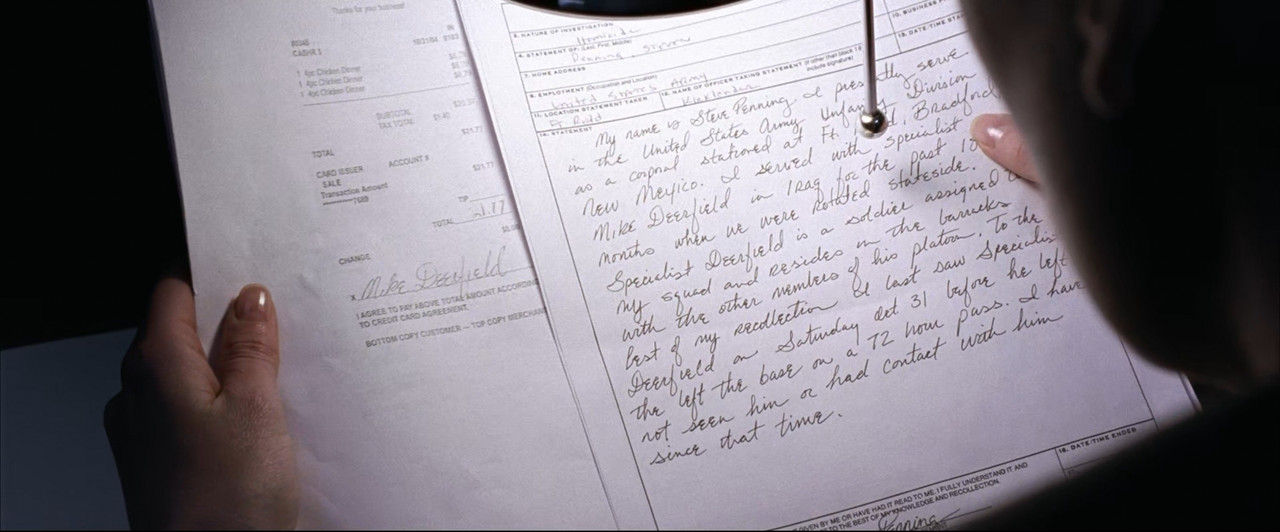 Thanks for your business!
CASHR 1
1 4pc Chicken Dinner
1 4pc Chicken Dinner
1 4pc Chicken Dinner
SUBTOTAL
TAX TOTAL $1.40
$21.77
TOTAL
CARD ISSUER ACCOUNT #
SALE $21.77
Transaction Amount
7689
TIP
TOTAL 21.77
CHANGE
X Mike Deerfield
I AGREE TO PAY ABOVE TOTAL AMOUNT ACCORDING
TO CREDIT CARD AGREEMENT.
BOTTOM COPY CUSTOMER — TOP COPY MERCHAN
5. NATURE OF INVESTIGATION
Homicide
6. STATEMENT OF: (Last, First, Middle)
Penning, Steven
7. HOME ADDRESS
8. EMPLOYMENT (Occupation and Location)
United States Army
10. NAME OF OFFICER TAKING STATEMENT (If other than block 18
include signature)
11. LOCATION STATEMENT TAKEN
Ft Rudd
14. STATEMENT
My name is Steve Penning I presently serve
in the United States Army Division
as a corpral stationed at Ft. Bradford
New Mexico. I served with Specialist
Mike Deerfield in Iraq for the past
months when we were rotated stateside.
Specialist Deerfield is a soldier assigned
my squad and resides in the barracks
with the other members of his platoon. To the
best of my recollection I last saw Specialis
Deerfield on Saturday Oct 31 before he left
the left the base on a 72 hour pass. I have
not seen him or had contact with him
since that time.
16. DATE/TIME ENDED
GIVEN BY ME OR HAVE HAD IT READ TO ME. I FULLY UNDERSTAND IT AND
TO THE BEST OF MY KNOWLEDGE AND RECOLLECTION.
Penning